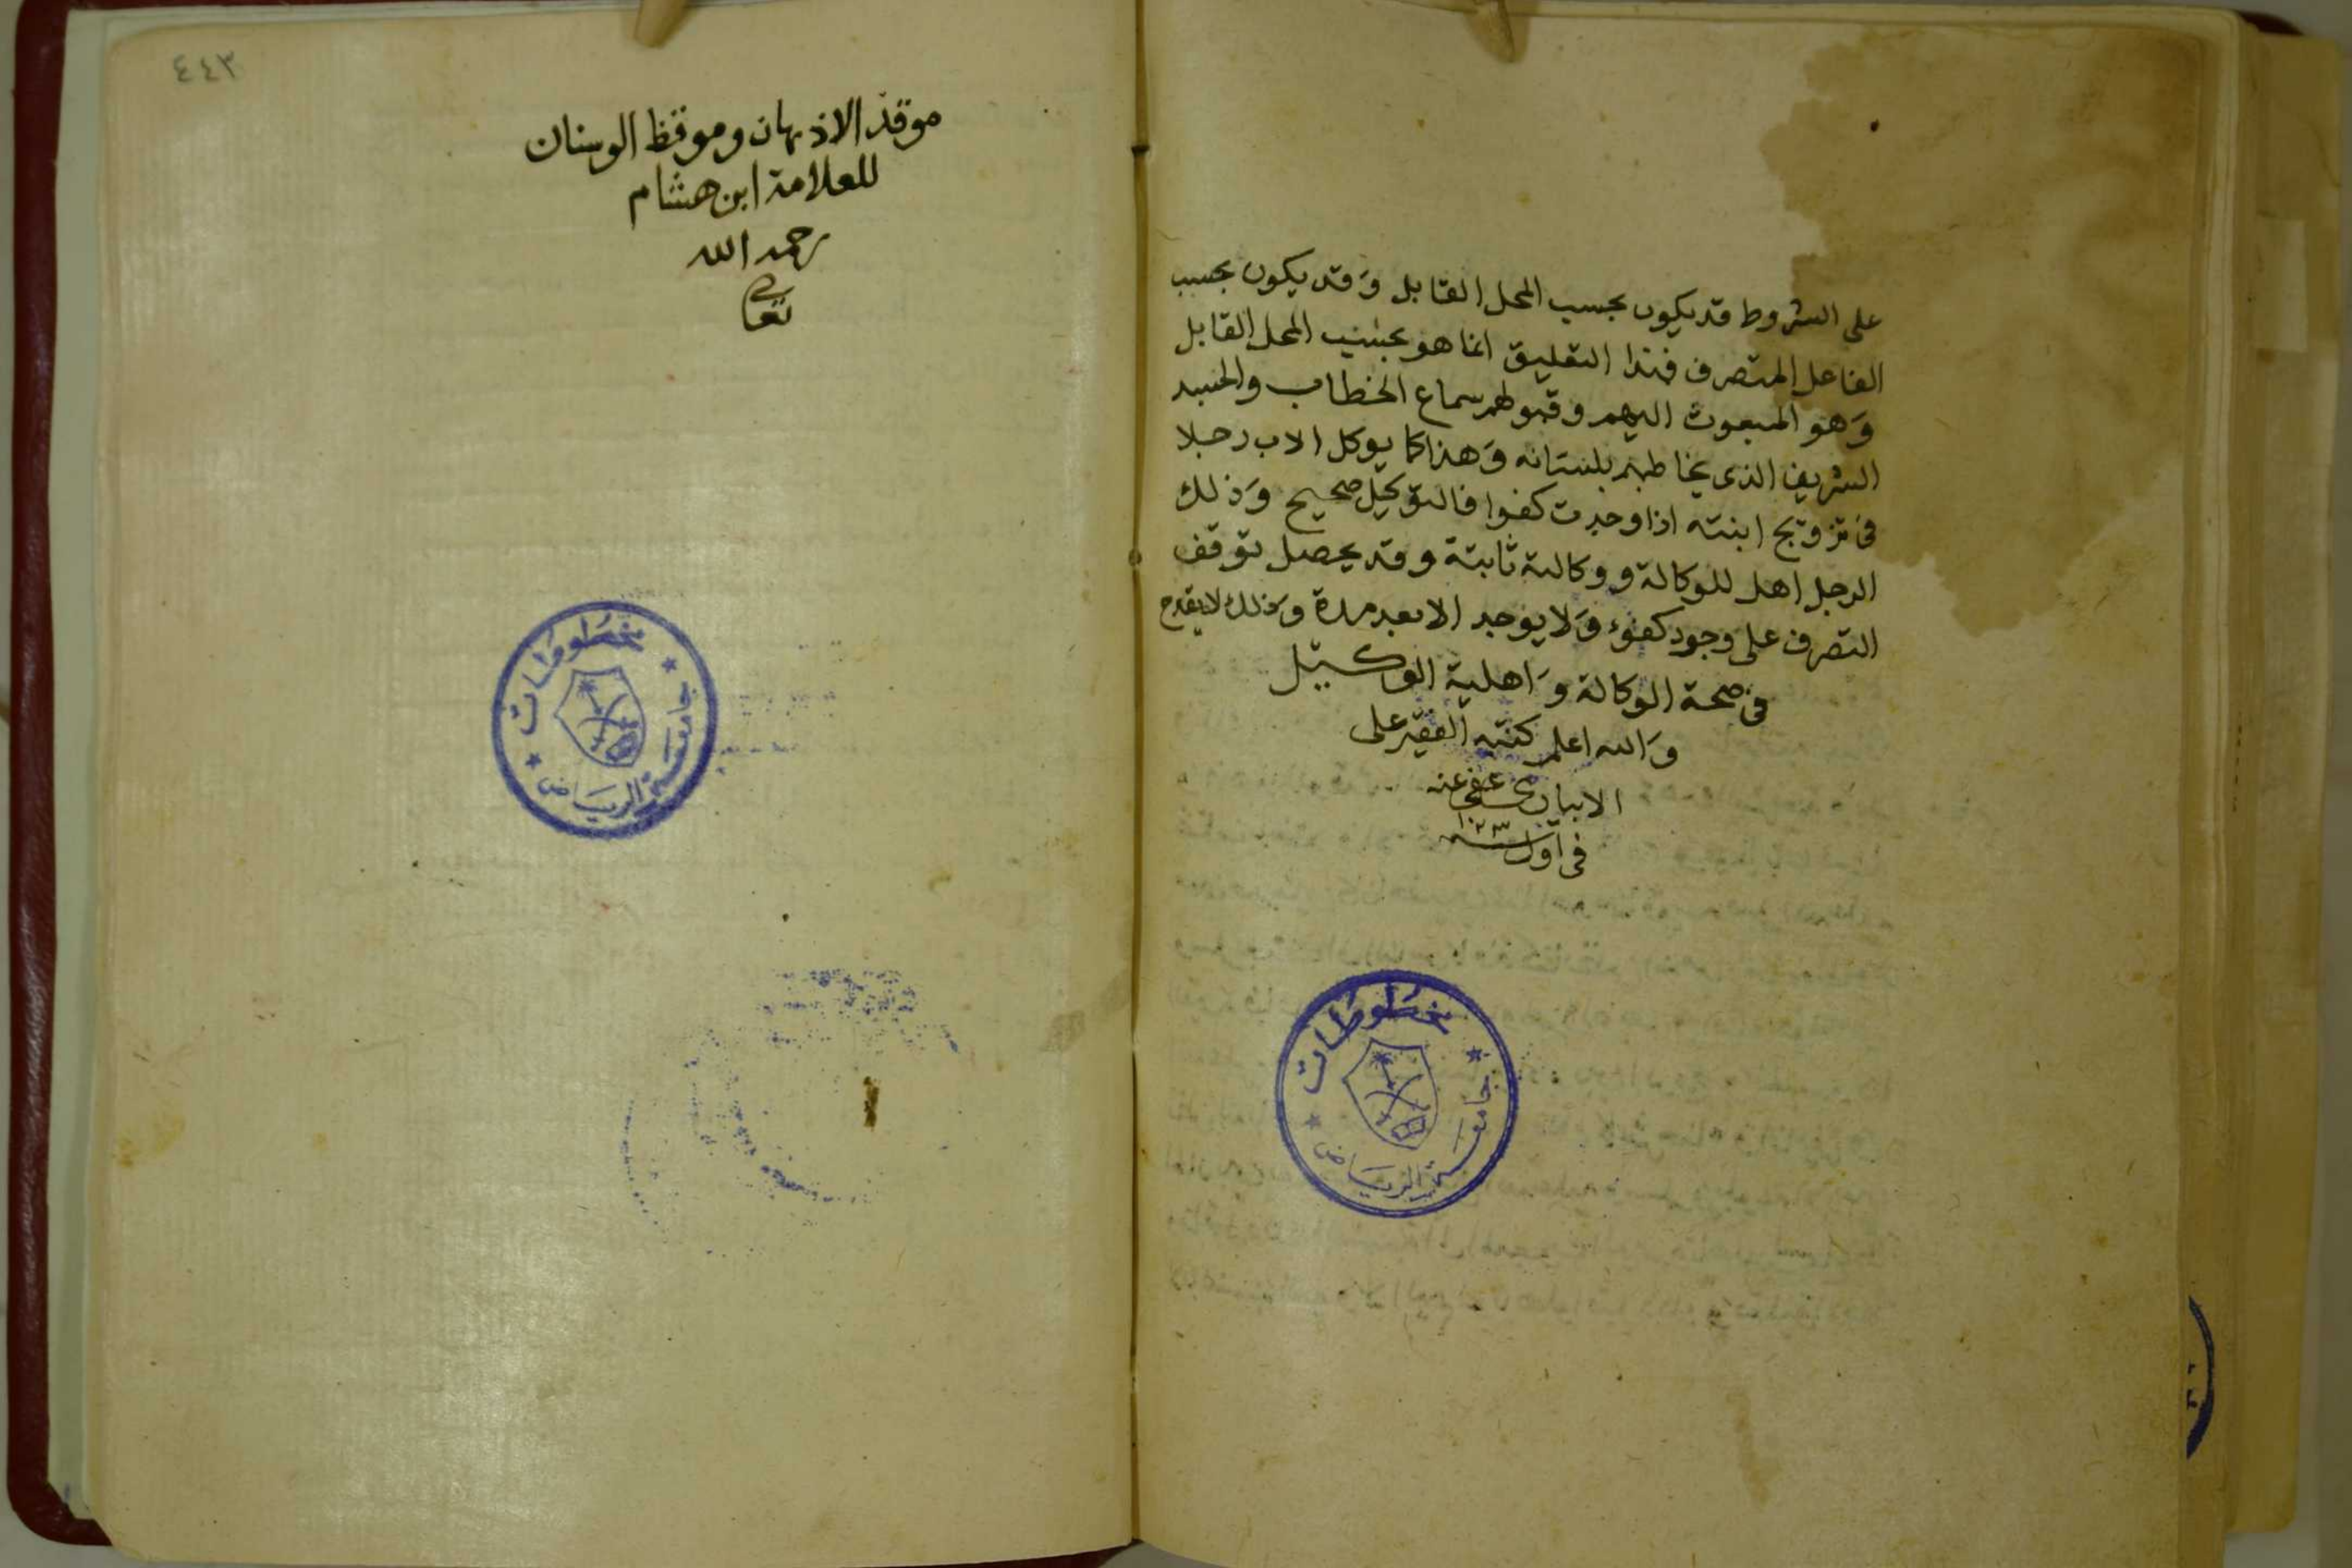 على الشروط قد يكون بحسب المحل القابل وَقد يكون بحسب
الفاعل المتصرف فهذا التعليق انما هو بحسب المحل القابل
وَهو المبعوث اليهم وقبولهم سماع الخطاب والجسد
الشريف الذى يخاطبهم بلسانه وَهذا كما يوكل الاب رجلا
فى تزويج ابنته اذا وجدت كفوا فالتوكيل صحيح وَذلك
الرجل اهل للوكالة ووكالته ثابتة وقد يحصل توقف
التصرف على وجود كفوء وَلا يوجد الا بعد مدة وَذلك لا يقدح
فى صحة الوكالة وَاهلية الوكيل
وَالله اعلم كتبه الفقير على
الابيارى عفى عنه
فى اول سنة
مخطوطات
جامعة الرياض
٤٤٣
موقد الاذهان وموقظ الوسنان
للعلامة ابن هشام
رحمه الله
تعالى
مخطوطات
جامعة الرياض